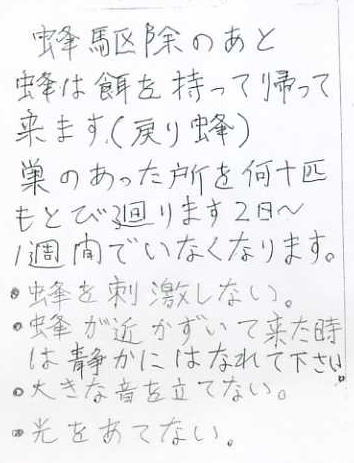 蜂駆除のあと
蜂は餌を持って帰って
来ます。(戻り蜂)
巣のあった所を何十匹
もとび廻ります2日〜
1週間でいなくなります。
・蜂を刺激しない。
・蜂が近かずいて来た時
は静かにはなれて下さい。
・大きな音を立てない。
・光をあてない。